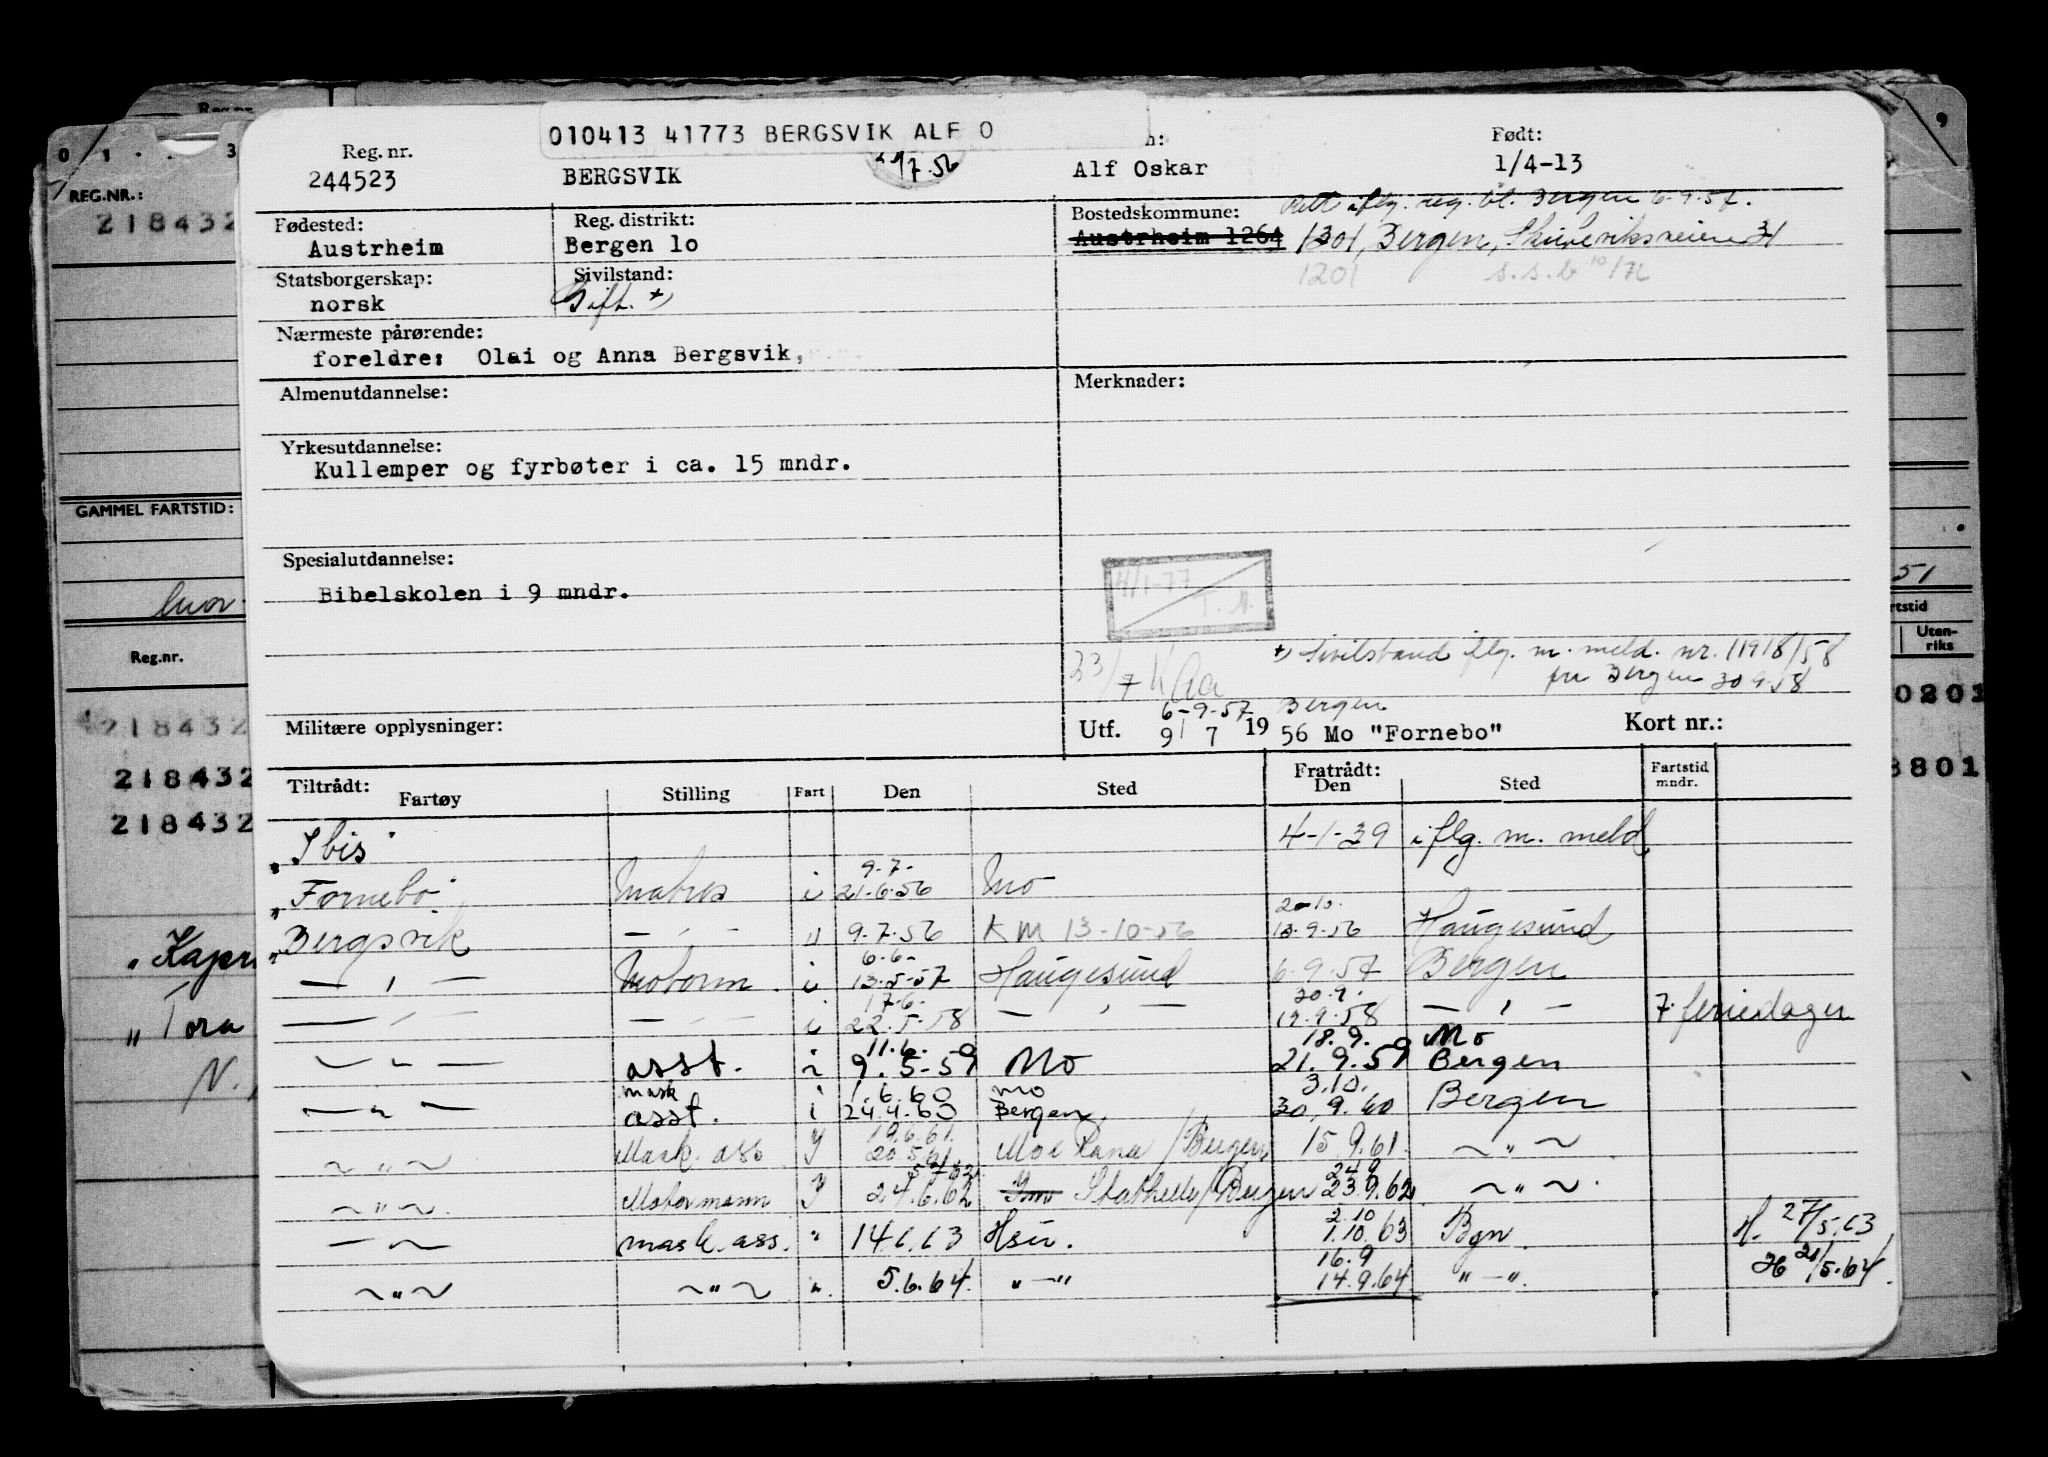 010413 41773 BERGSVIK ALF O
Reg. nr. Født:
244523 BERGSVIK Alf Oskar 1/4-13
Fødested: Reg. distrikt: Bostedskommune: i flg. reg. bl. Bergen 6-9-57.
Austrheim Bergen lo Austrheim 1264 1301, Bergen,
Statsborgerskap: Sivilstand: 1201 s.s.b 10/72
norsk Gift. +)
Nærmeste pårørende:
foreldre: Olai og Anna Bergsvik,
Almenutdannelse: Merknader:
Yrkesutdannelse:
Kullemper og fyrbøter i ca. 15 mndr.
Spesialutdannelse:
4/1-77
Bibelskolen i 9 mndr.
+) Sivilstand iflg. m. meld. nr. 11918/58
fra Bergen 30 9.58
6-9-57 Bergen
Militære opplysninger: Utf. 9/7 1956 Mo "Fornebo" Kort nr.:
Tiltrådt: Fratrådt: Fartstid
Fartøy Stilling Fart Den Sted Den Sted mndr.
"Ibis" 4-1-39 iflg. m. meld
9.7.
"Fornebo" Matros i 21-6-56 Mo
2-10.
"Bergsvik — " — " 9.7.56 KM 13-10-56 13.9.56 Haugesund
6.6-
— " — Motorm. i 13.5.57 Haugesund 6-9-57 Bergen
17.6. 20.9.
— " — — " — i 22.5.58 — " — 19.9.58 — " — 7 feriedager
11.6. 18.9. Mo
— " — asst. i 9.5-59 Mo 21.9.59 Bergen
mask 1.6.60 mo 3.10.
— " — asst. i 24.4.60 Bergen 30.9.60 Bergen
19.6.61.
— " — Mask. ass Y 20.5.61 Mo i Rana / Bergen 15.9.61. — " —
24.9
— " — Motormann Y 24.6.62 Stathelle / Bergen 23.9.62 — " —
2.10
— " — mask. ass. " 14.6.63 Hsu. 1.10.63 Bgn. H. 27/5.63
16.9
— " — — " — " 5.6.64. " — " 14.9.64 " — " H 21/5.64.
REG.NR.:
218432
GAMMEL FARTSTID:
Reg.nr.
218432
218432
218432
"Tora
N.
51
Uten-
riks
0201
8801